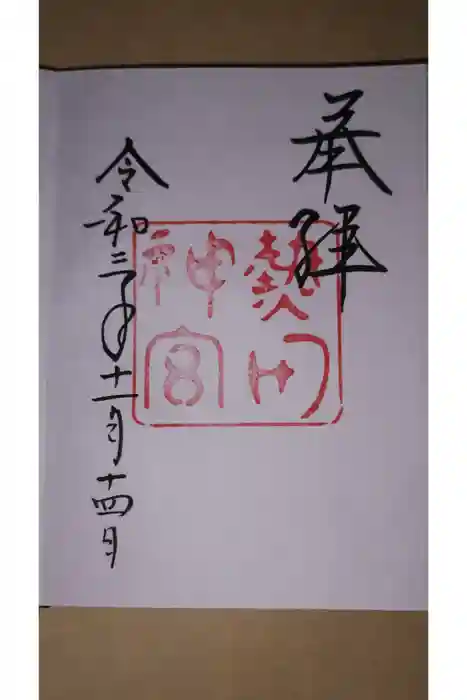 奉拝
熱田
神宮
令和三年十一月十四日